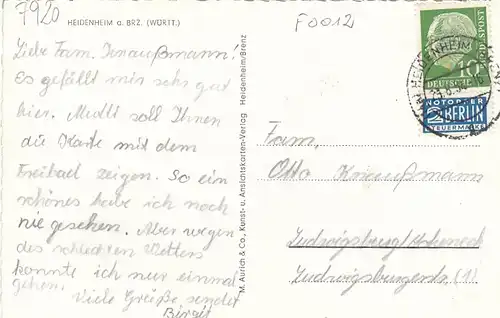 7920
HEIDENHEIM a. BRZ. (WÜRTT.)
F0012
Liebe Fam. Knaußmann!
Es gefällt mir sehr gut
hier. Mutti soll Ihnen
die Karte mit dem
Freibad zeigen. So ein
schönes habe ich noch
nie gesehen. Aber wegen
des schlechten Wetters
konnte ich nur einmal
gehen.
Viele Grüße sendet
Birgit
M. Aurich & Co., Kunst- u. Ansichtskarten-Verlag Heidenheim/Brenz
Fam.
Otto Knaußmann
Ludwigsburg/Hoheneck
Ludwigsburgerstr. (1)
HEIDENHEIM
10
DEUTSCHE BUNDESPOST
NOTOPFER
2 BERLIN
STEUERMARKE